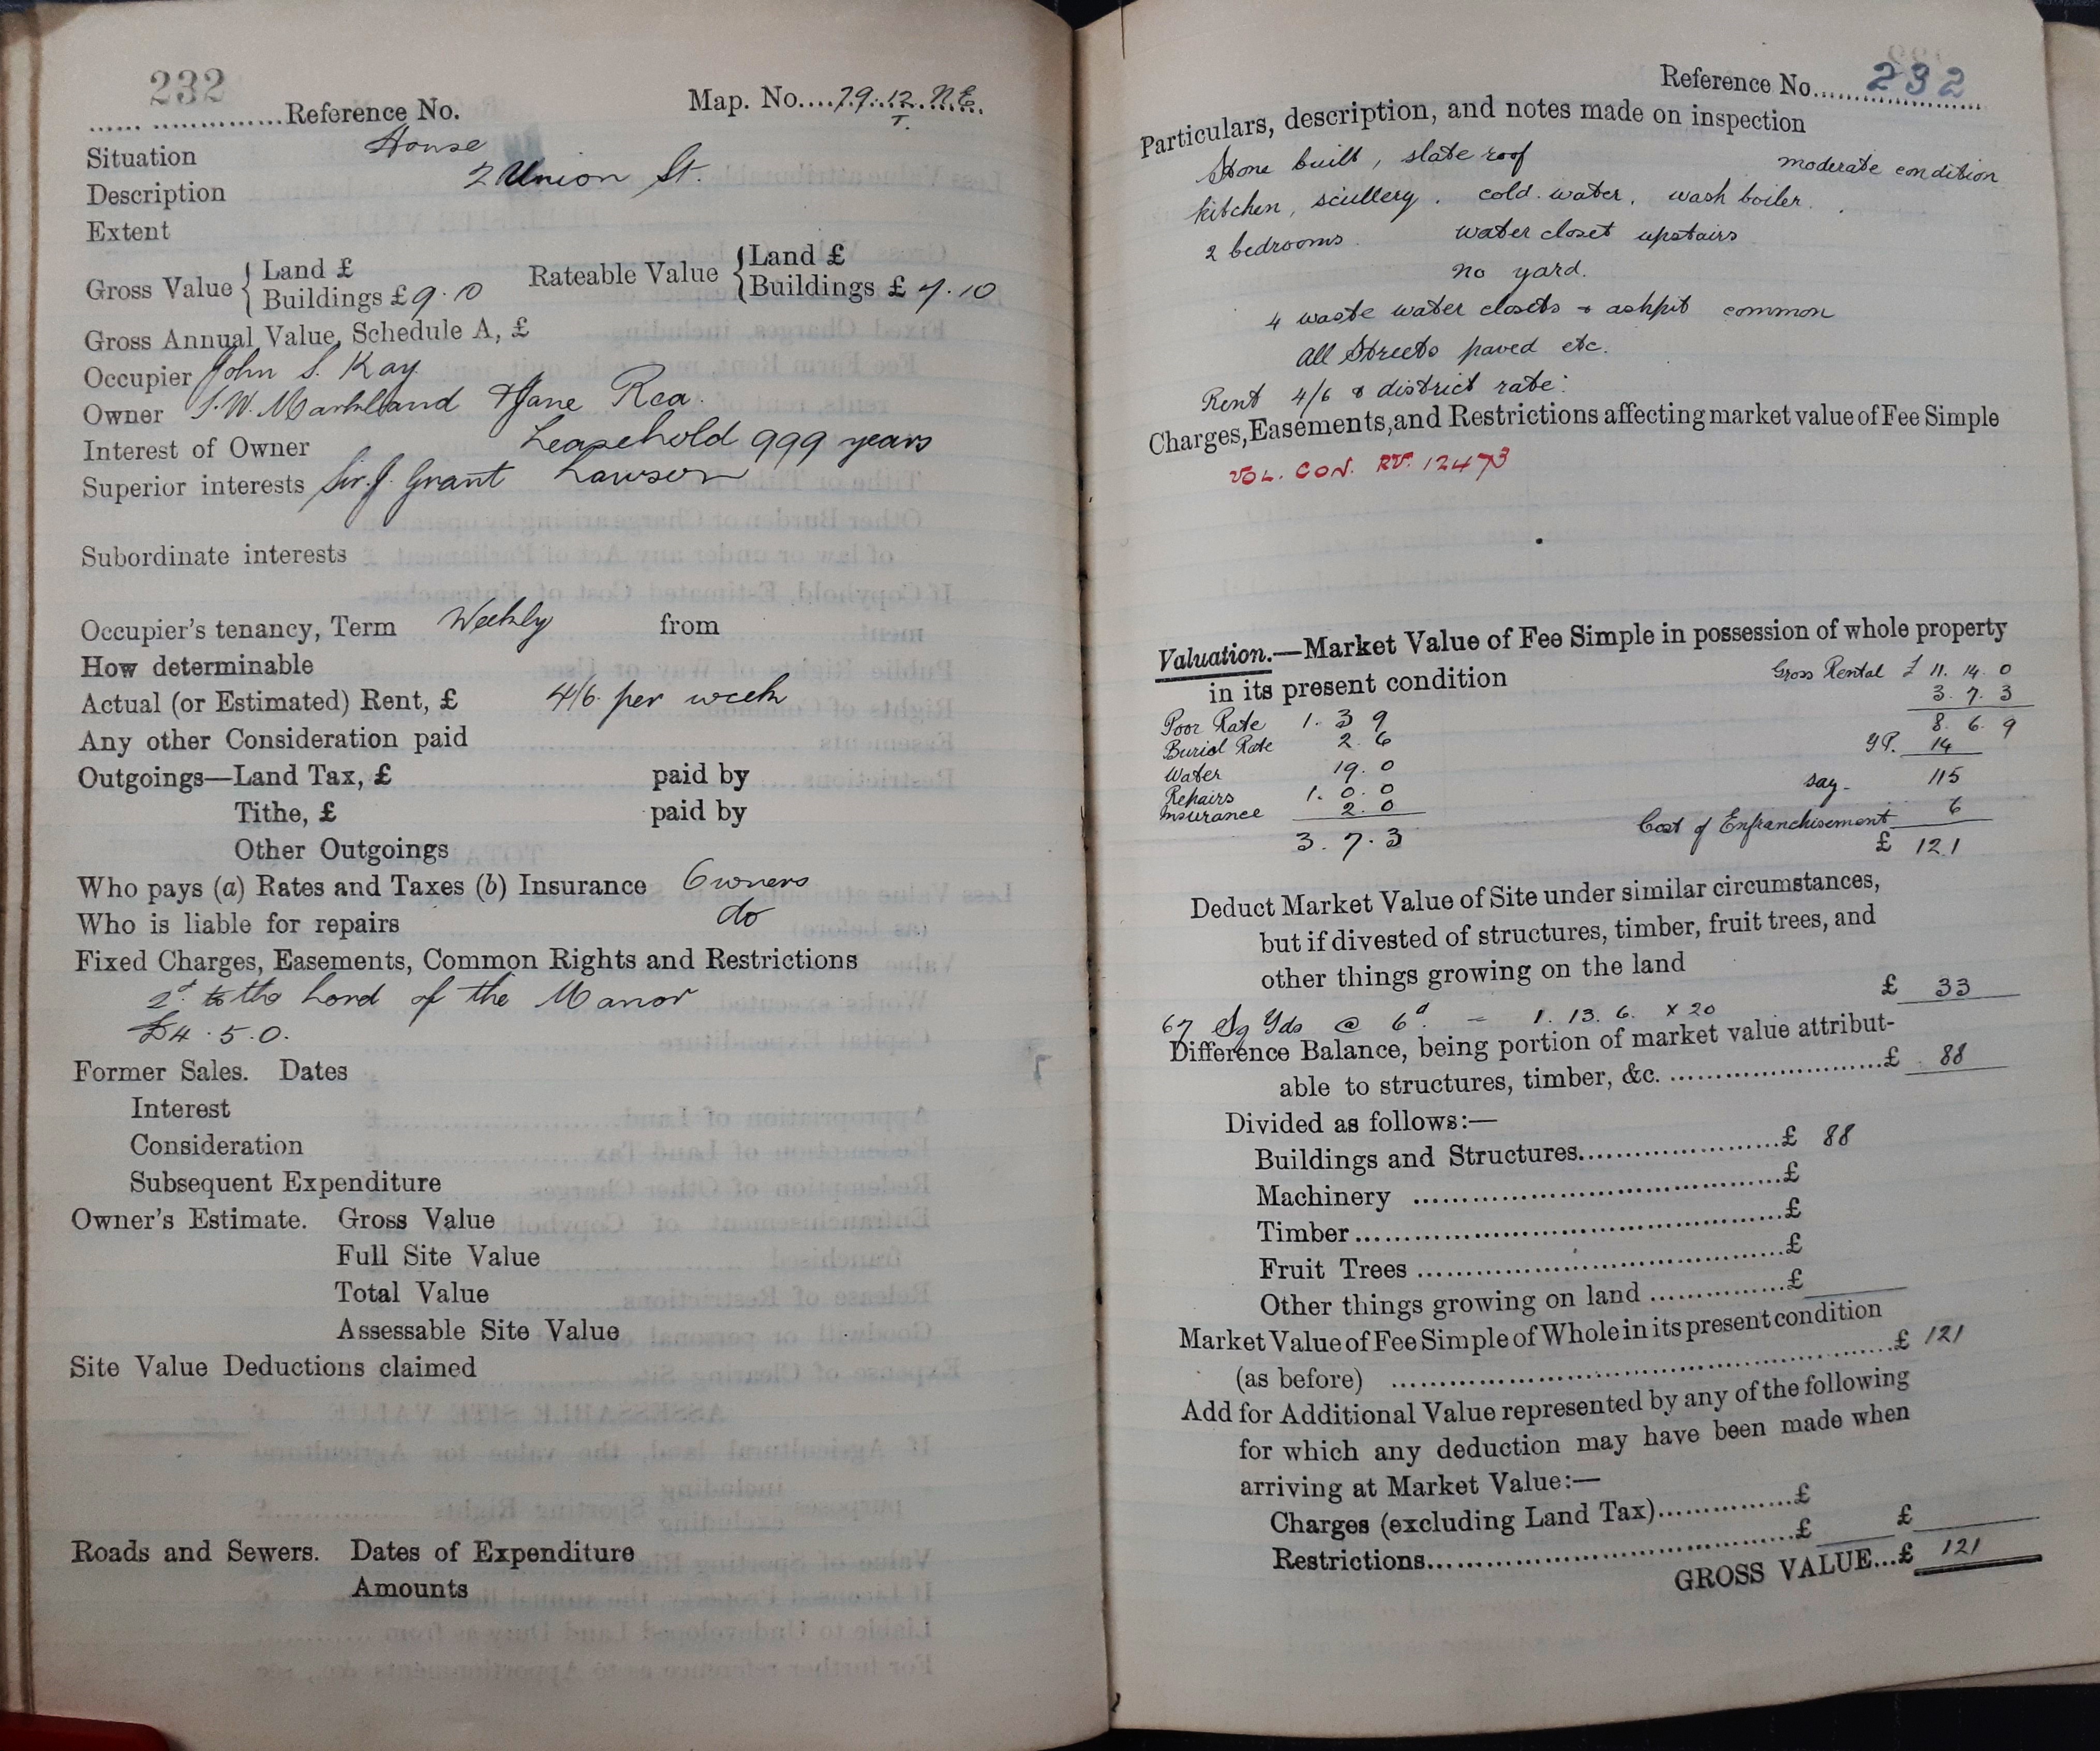 232
Reference No.
Map. No....79.12.N.E.
T.
Situation House
Description 2 Union St.
Extent
Gross Value { Land £
Buildings £ 9.10
Rateable Value { Land £
Buildings £ 7.10
Gross Annual Value, Schedule A, £
Occupier John S. Kay
Owner J.W. Markland & Jane Rea.
Interest of Owner Leasehold 999 years
Superior interests Sir J. Grant Lawson
Subordinate interests
Occupier's tenancy, Term Weekly from
How determinable
Actual (or Estimated) Rent, £ 4/6 per week
Any other Consideration paid
Outgoings—Land Tax, £ paid by
Tithe, £ paid by
Other Outgoings
Who pays (a) Rates and Taxes (b) Insurance Owners
Who is liable for repairs do
Fixed Charges, Easements, Common Rights and Restrictions
2d to the Lord of the Manor
£4.5.0.
Former Sales. Dates
Interest
Consideration
Subsequent Expenditure
Owner's Estimate. Gross Value
Full Site Value
Total Value
Assessable Site Value
Site Value Deductions claimed
Roads and Sewers. Dates of Expenditure
Amounts
Reference No. 232
Particulars, description, and notes made on inspection
Stone built, slate roof moderate condition
kitchen, scullery. cold water, wash boiler.
2 bedrooms. water closet upstairs
no yard.
4 waste water closets & ashpit common
all Streets paved etc.
Rent 4/6 & district rate:
Charges, Easements, and Restrictions affecting market value of Fee Simple
VOL. CON. RV. 12473
Valuation.—Market Value of Fee Simple in possession of whole property
in its present condition
Gross Rental £ 11. 14. 0
3. 7. 3
8. 6. 9
YP. 14
say 115
Cost of Enfranchisement 6
£ 121
Poor Rate 1. 3 9
Burial Rate 2. 6
Water 19. 0
Repairs 1. 0. 0
Insurance 2. 0
3. 7. 3
Deduct Market Value of Site under similar circumstances,
but if divested of structures, timber, fruit trees, and
other things growing on the land
£ 33
67 Sq Yds @ 6d. = 1. 13. 6. x 20
Difference Balance, being portion of market value attribut-
able to structures, timber, &c. ..........£ 88
Divided as follows:—
Buildings and Structures..........£ 88
Machinery ..........£
Timber..........£
Fruit Trees ..........£
Other things growing on land ..........£
Market Value of Fee Simple of Whole in its present condition
(as before) ..........£ 121
Add for Additional Value represented by any of the following
for which any deduction may have been made when
arriving at Market Value:—
Charges (excluding Land Tax)..........£
Restrictions..........£ £
GROSS VALUE...£ 121